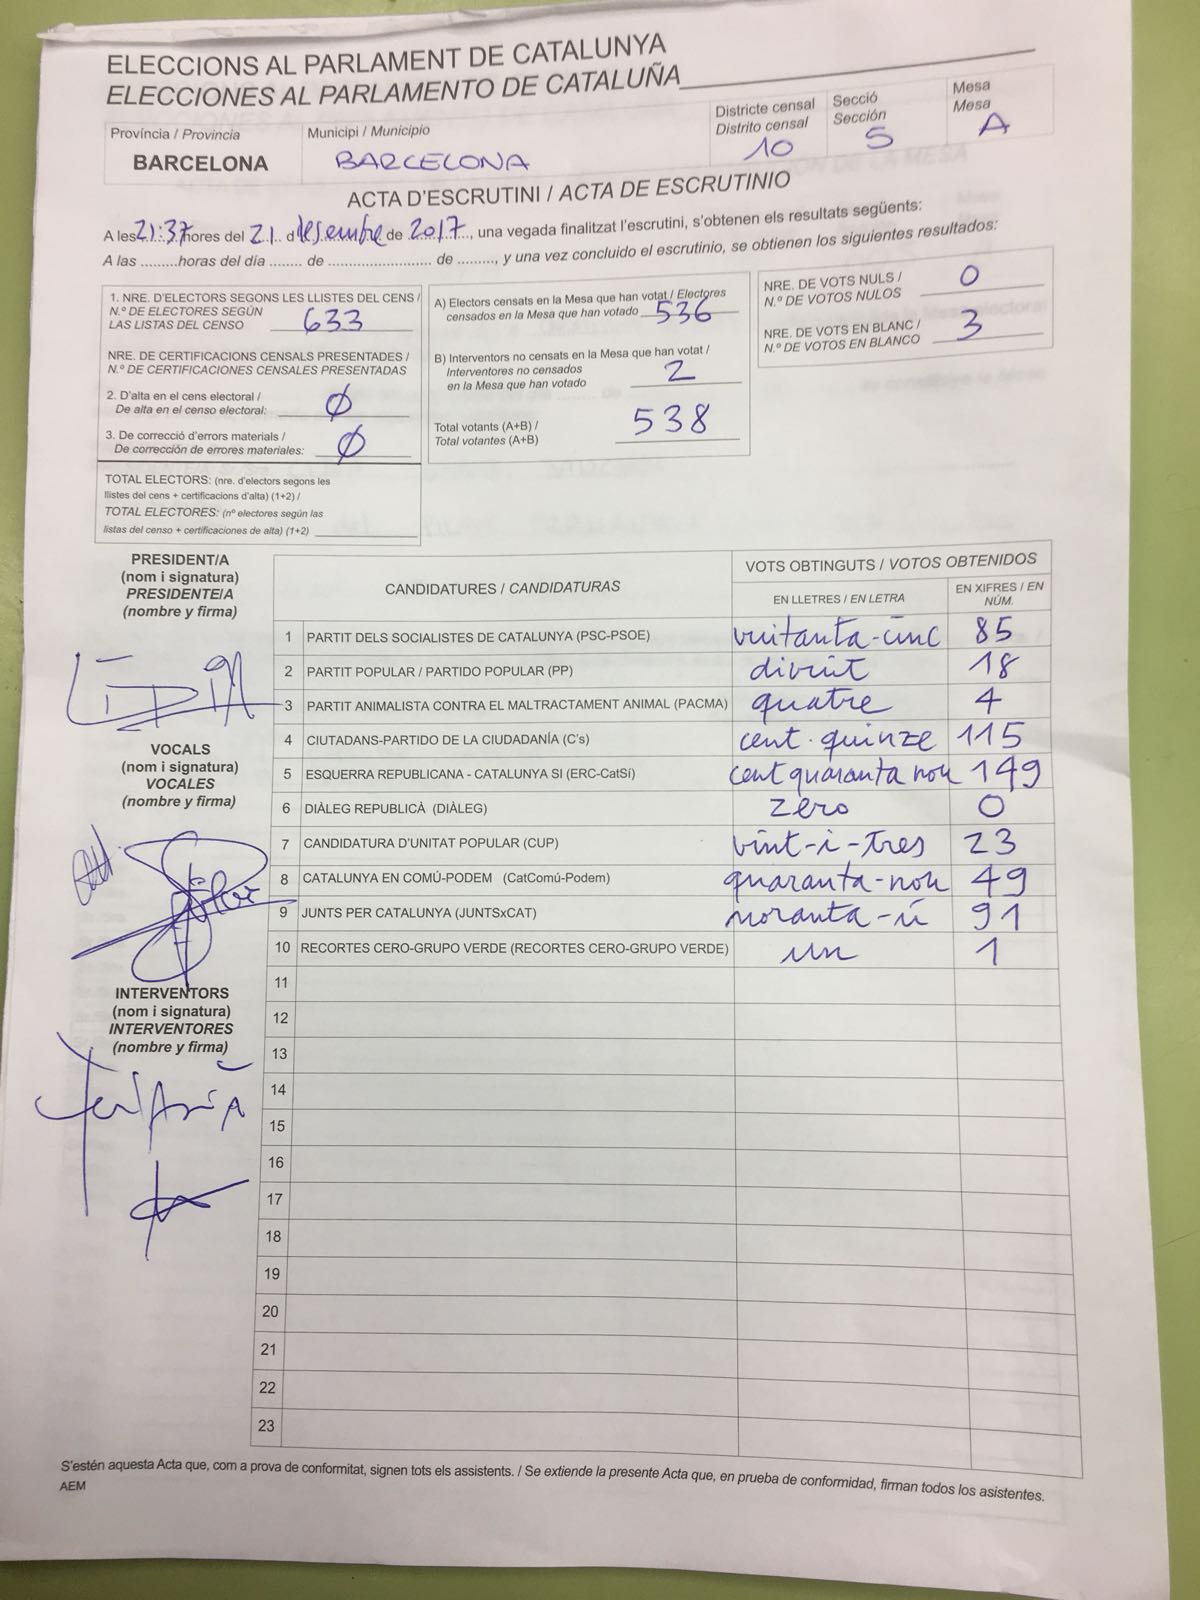 ELECCIONS AL PARLAMENT DE CATALUNYA
ELECCIONES AL PARLAMENTO DE CATALUÑA
Província / Provincia
BARCELONA
Municipi / Municipio
BARCELONA
Districte censal
Distrito censal
10
Secció
Sección
5
Mesa
Mesa
A
ACTA D'ESCRUTINI / ACTA DE ESCRUTINIO
A les 21:37 hores del 21 desembre de 2017, una vegada finalitzat l'escrutini, s'obtenen els resultats següents:
A las .........horas del día ........ de .......................... de ........., y una vez concluido el escrutinio, se obtienen los siguientes resultados:
1. NRE. D'ELECTORS SEGONS LES LLISTES DEL CENS /
N.º DE ELECTORES SEGÚN
LAS LISTAS DEL CENSO 633
NRE. DE CERTIFICACIONS CENSALS PRESENTADES /
N.º DE CERTIFICACIONES CENSALES PRESENTADAS
2. D'alta en el cens electoral /
De alta en el censo electoral: Ø
3. De correcció d'errors materials /
De corrección de errores materiales: Ø
TOTAL ELECTORS: (nre. d'electors segons les
llistes del cens + certificacions d'alta) (1+2) /
TOTAL ELECTORES: (nº electores según las
listas del censo + certificaciones de alta) (1+2)
A) Electors censats en la Mesa que han votat / Electores
censados en la Mesa que han votado 536
B) Interventors no censats en la Mesa que han votat /
Interventores no censados
en la Mesa que han votado 2
Total votants (A+B) /
Total votantes (A+B) 538
NRE. DE VOTS NULS /
N.º DE VOTOS NULOS 0
NRE. DE VOTS EN BLANC /
N.º DE VOTOS EN BLANCO 3
PRESIDENT/A
(nom i signatura)
PRESIDENTE/A
(nombre y firma)
LIDIA
VOCALS
(nom i signatura)
VOCALES
(nombre y firma)
INTERVENTORS
(nom i signatura)
INTERVENTORES
(nombre y firma)
CANDIDATURES / CANDIDATURAS
VOTS OBTINGUTS / VOTOS OBTENIDOS
EN LLETRES / EN LETRA
EN XIFRES / EN
NÚM.
1 PARTIT DELS SOCIALISTES DE CATALUNYA (PSC-PSOE) vuitanta-cinc 85
2 PARTIT POPULAR / PARTIDO POPULAR (PP) divuit 18
3 PARTIT ANIMALISTA CONTRA EL MALTRACTAMENT ANIMAL (PACMA) quatre 4
4 CIUTADANS-PARTIDO DE LA CIUDADANÍA (C's) cent quinze 115
5 ESQUERRA REPUBLICANA - CATALUNYA SI (ERC-CatSí) cent quaranta nou 149
6 DIÀLEG REPUBLICÀ (DIÀLEG) zero 0
7 CANDIDATURA D'UNITAT POPULAR (CUP) vint-i-tres 23
8 CATALUNYA EN COMÚ-PODEM (CatComú-Podem) quaranta-nou 49
9 JUNTS PER CATALUNYA (JUNTSxCAT) noranta-ú 91
10 RECORTES CERO-GRUPO VERDE (RECORTES CERO-GRUPO VERDE) un 1
11
12
13
14
15
16
17
18
19
20
21
22
23
S'estén aquesta Acta que, com a prova de conformitat, signen tots els assistents. / Se extiende la presente Acta que, en prueba de conformidad, firman todos los asistentes.
AEM